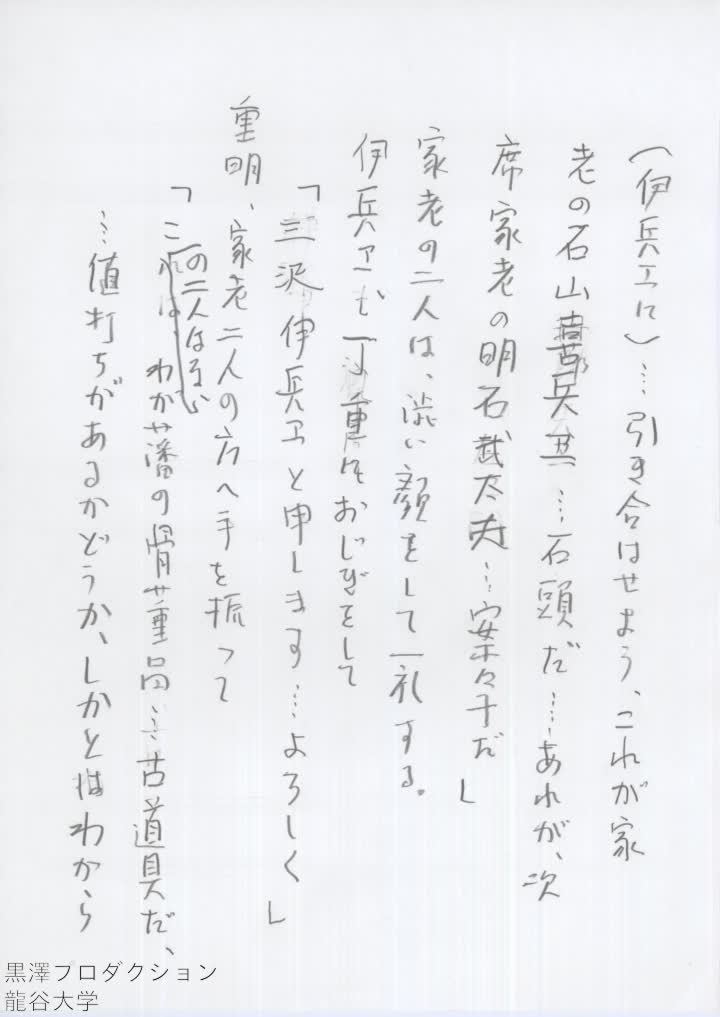 （伊兵ヱに）…引き合はせよう、これが家
老の石山喜兵ヱ…石頭だ…あれが、次
席家老の明石武太夫…案山子だ」
家老の二人は、渋い顔をして一礼する。
伊兵ヱも丁重におじぎをして
「三沢伊兵ヱと申します…よろしく」
重明、家老二人の方へ手を振って
「この二人はな、わが藩の骨董品…古道具だ、
…値打ちがあるかどうか、しかとはわから
黒澤プロダクション
龍谷大学